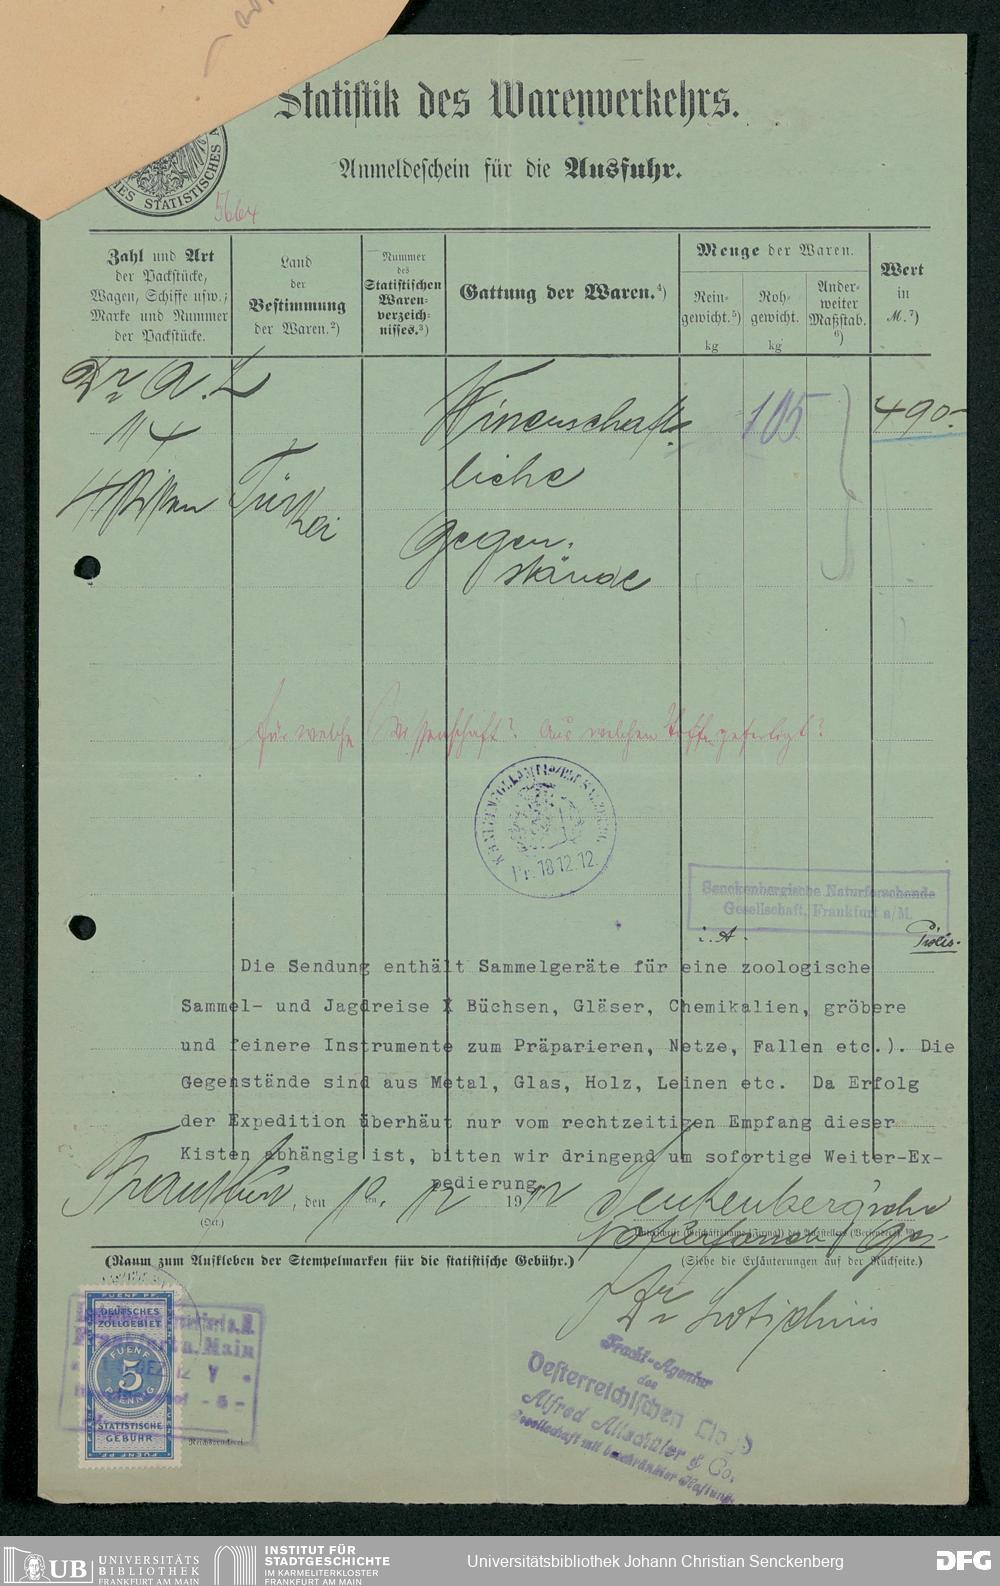 Statistik des Warenverkehrs.
Anmeldeschein für die Ausfuhr.
STATISTISCHES
5664
Zahl und Art
der Packstücke,
Wagen, Schiffe usw.;
Marke und Nummer
der Packstücke.
Land
der
Bestimmung
der Waren.²)
Nummer
des
Statistischen
Waren-
verzeich-
nisses.³)
Gattung der Waren.⁴)
Menge der Waren.
Rein-
gewicht.⁵)
kg
Roh-
gewicht.
kg
Ander-
weiter
Maßstab.
⁶)
Wert
in
M.⁷)
Dr A. L
1/4
4 Kisten
Türkei
Wissenschaft-
liche
Gegen-
stände
105
490.-
Für welche Wissenschaft? Aus welchen Stoffen gefertigt?
Pr. 18.12.12.
Senckenbergische Naturforschende
Gesellschaft, Frankfurt a/M.
i. A.
Die Sendung enthält Sammelgeräte für eine zoologische
Sammel- und Jagdreise X Büchsen, Gläser, Chemikalien, gröbere
und feinere Instrumente zum Präparieren, Netze, Fallen etc.). Die
Gegenstände sind aus Metal, Glas, Holz, Leinen etc. Da Erfolg
der Expedition überhäut nur vom rechtzeitigen Empfang dieser
Kisten abhängig ist, bitten wir dringend um sofortige Weiter-Ex-
pedierung.
Frankfurt, den 10. 12 1912
(Ort.)
Senkenberg'sche
Naturforsch. Ges.
(Siehe die Erläuterungen auf der Rückseite.)
(Raum zum Aufkleben der Stempelmarken für die statistische Gebühr.)
Dr
FUENF PF.
DEUTSCHES
ZOLLGEBIET
FUENF
5
PFENNIG
STATISTISCHE
GEBÜHR
FUENF PF.
a. Main
Reichsdruckerei
Fracht-Agentur
des
Oesterreichischen Lloyd
Alfred Altschüler & Co.
Gesellschaft mit beschränkter Haftung
UB UNIVERSITÄTS
BIBLIOTHEK
FRANKFURT AM MAIN
INSTITUT FÜR
STADTGESCHICHTE
IM KARMELITERKLOSTER
FRANKFURT AM MAIN
Universitätsbibliothek Johann Christian Senckenberg
DFG